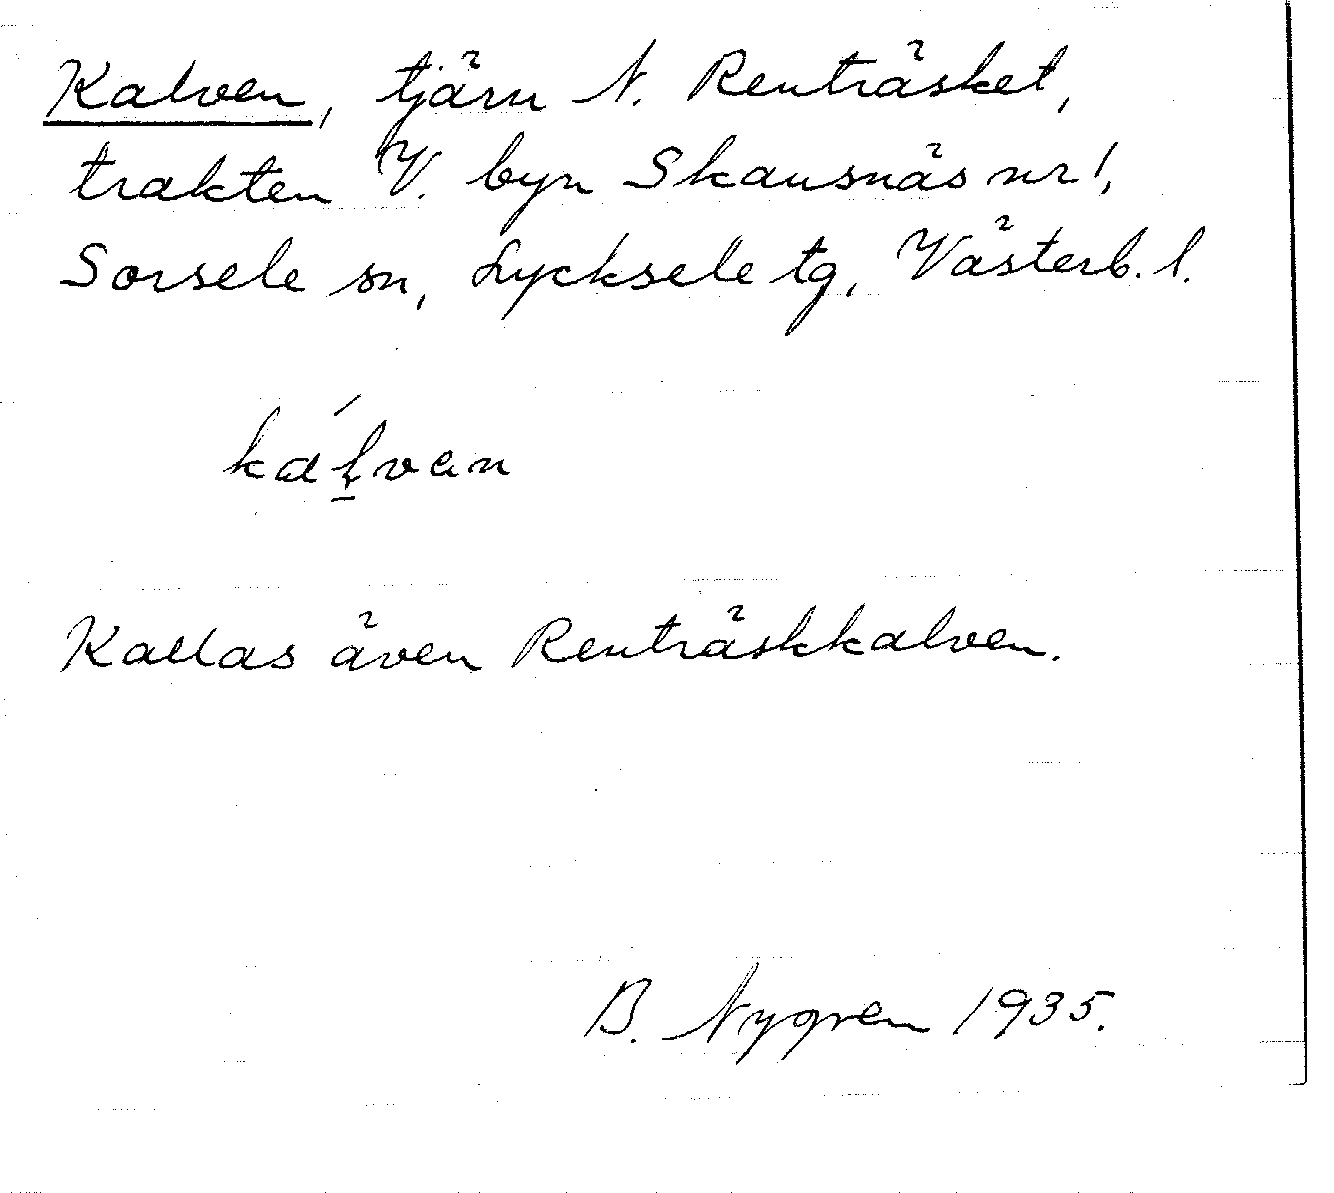 Kalven, tjärn N. Renträsket,
trakten V. byn Skansnäs nr 1,
Sorsele sn, Lycksele tg, Västerb. l.
kaḷ́van
Kallas även Renträskkalven.
B. Nygren 1935.